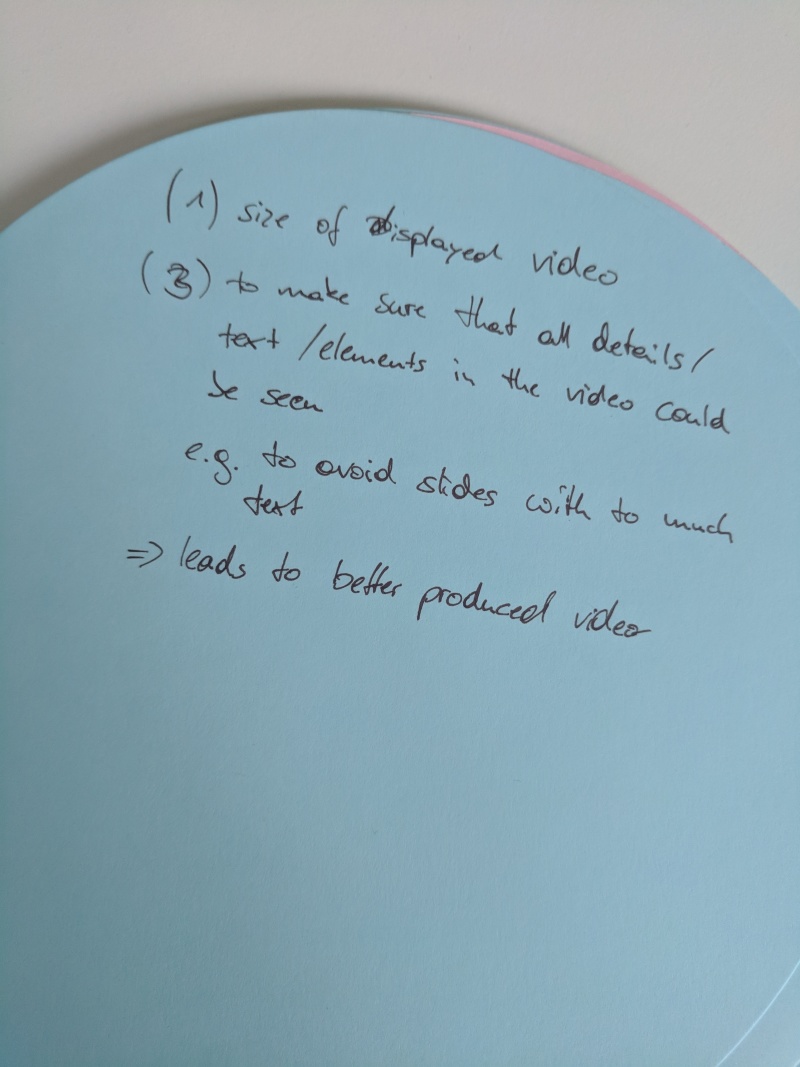 (1) size of displayed video
(3) to make sure that all details/
text /elements in the video could
be seen
e.g. to avoid slides with to much
text
=> leads to better produced video